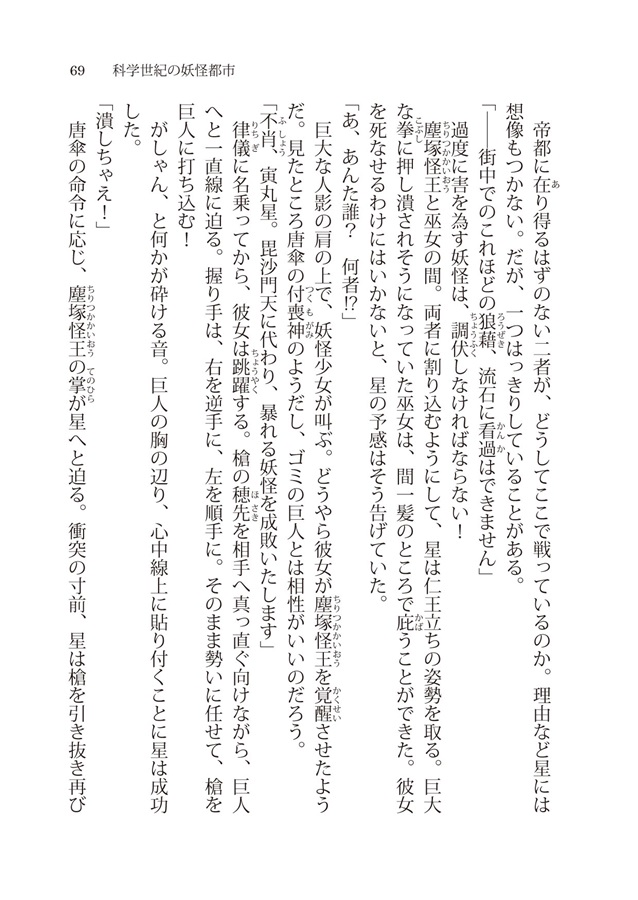 69　科学世紀の妖怪都市
　帝都に在り得るはずのない二者が、どうしてここで戦っているのか。理由など星には
想像もつかない。だが、一つはっきりしていることがある。
「――街中でのこれほどの狼藉、流石に看過はできません」
　過度に害を為す妖怪は、調伏しなければならない！
　塵塚怪王と巫女の間。両者に割り込むようにして、星は仁王立ちの姿勢を取る。巨大
な拳に押し潰されそうになっていた巫女は、間一髪のところで庇うことができた。彼女
を死なせるわけにはいかないと、星の予感はそう告げていた。
「あ、あんた誰？　何者⁉」
　巨大な人影の肩の上で、妖怪少女が叫ぶ。どうやら彼女が塵塚怪王を覚醒させたよう
だ。見たところ唐傘の付喪神のようだし、ゴミの巨人とは相性がいいのだろう。
「不肖、寅丸星。毘沙門天に代わり、暴れる妖怪を成敗いたします」
　律儀に名乗ってから、彼女は跳躍する。槍の穂先を相手へ真っ直ぐ向けながら、巨人
へと一直線に迫る。握り手は、右を逆手に、左を順手に。そのまま勢いに任せて、槍を
巨人に打ち込む！
　がしゃん、と何かが砕ける音。巨人の胸の辺り、心中線上に貼り付くことに星は成功
した。
「潰しちゃえ！」
　唐傘の命令に応じ、塵塚怪王の掌が星へと迫る。衝突の寸前、星は槍を引き抜き再び